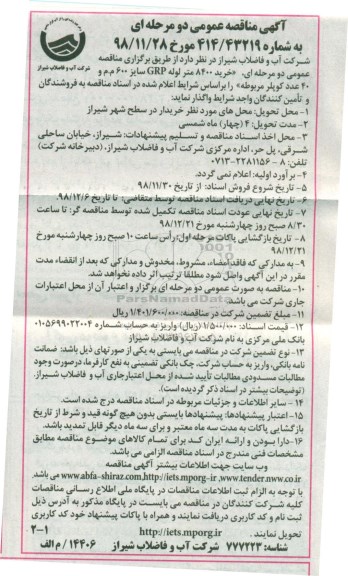 آگهی مناقصه عمومی دو مرحله ای
به شماره ۴۱۴/۴۳۲۱۹ مورخ ۹۸/۱۱/۲۸
شرکت آب و فاضلاب شیراز
شرکت آب و فاضلاب شیراز در نظر دارد از طریق برگزاری مناقصه
عمومی دو مرحله ای، «خرید ۸۴۰۰ متر لوله GRP سایز ۶۰۰ م.م و
۴۰ عدد کوپلر مربوطه» را براساس شرایط اعلام شده در اسناد مناقصه به فروشندگان
و تأمین کنندگان واجد شرایط واگذار نماید:
۱- محل تحویل: محل های مورد نظر خریدار در سطح شهر شیراز
۲- مدت تحویل: ۴ (چهار) ماه شمسی
۳- محل اخذ اسناد مناقصه و تسلیم پیشنهادات: شیراز، خیابان ساحلی
شرقی، پل حر، اداره مرکزی شرکت آب و فاضلاب شیراز، (دبیرخانه شرکت)
تلفن: ۸ - ۰۷۱۳-۲۲۸۱۱۵۶
۴- برآورد اولیه: اعلام نمی گردد.
۵- تاریخ شروع فروش اسناد: از تاریخ ۹۸/۱۱/۳۰
۶- تاریخ نهایی دریافت اسناد مناقصه توسط متقاضی: تا تاریخ ۹۸/۱۲/۶
۷- تاریخ نهایی عودت اسناد مناقصه تکمیل شده توسط مناقصه گر: تا ساعت
۸/۳۰ صبح روز چهارشنبه مورخ ۹۸/۱۲/۲۱
۸- تاریخ بازگشایی پاکات مرحله اول: رأس ساعت ۱۰ صبح روز چهارشنبه مورخ
۹۸/۱۲/۲۱
۹- به مدارکی که فاقد امضاء، مشروط، مخدوش و مدارکی که بعد از انقضاء مدت
مقرر در این آگهی واصل شود مطلقا ترتیب اثر داده نخواهد شد.
۱۰- مناقصه به صورت عمومی دو مرحله ای برگزار و اعتبار آن از محل اعتبارات
جاری شرکت می باشد.
۱۱- مبلغ تضمین شرکت در مناقصه: ۱/۴۰۱/۶۰۰/۰۰۰ ریال
۱۲- قیمت اسناد: ۱/۵۰۰/۰۰۰ (ریال) واریز به حساب شماره ۰۱۰۵۶۹۹۰۲۲۰۰۴
بانک ملی مرکزی به نام شرکت آب و فاضلاب شیراز
۱۳- نوع تضمین شرکت در مناقصه می بایستی به یکی از صورتهای ذیل باشد: ضمانت
نامه بانکی، واریز به حساب شرکت، چک بانکی تضمینی به نفع کارفرما، درصورت وجود
مطالبات مسدودی مطالبات تأیید شده از محل اعتبار جاری آب و فاضلاب شیراز.
(توضیحات بیشتر در اسناد ذکر گردیده است).
۱۴- سایر اطلاعات و جزئیات مربوطه در اسناد مناقصه درج شده است.
۱۵- اعتبار پیشنهادها: پیشنهادها بایستی بدون هیچ گونه قید و شرط از تاریخ
بازگشایی پاکات به مدت سه ماه معتبر و برای سه ماه دیگر قابل تمدید باشد.
۱۶- دارا بودن و ارائه ایران کد برای تمام کالاهای موضوع مناقصه مطابق
مشخصات فنی مندرج در اسناد مناقصه الزامی می باشد.
وب سایت جهت اطلاعات بیشتر آگهی مناقصه
www.tender.nww.co.ir، http://iets.mporg-ir، www.abfa-shiraz.com می باشد.
با توجه به الزام ثبت اطلاعات مناقصات در پایگاه ملی اطلاع رسانی مناقصات
کلیه شرکت کنندگان در مناقصه می بایست در پایگاه مذکور به آدرس ذیل
ثبت نام و کد کاربری دریافت نمایند و همراه با پاکات پیشنهاد خود کد کاربری
تحویل نمایند. http://iets.mporg.ir ۲-۱
شناسه: ۷۷۷۲۲۳ شرکت آب و فاضلاب شیراز ۱۴۴۰۶ / م الف
ParsNamadData